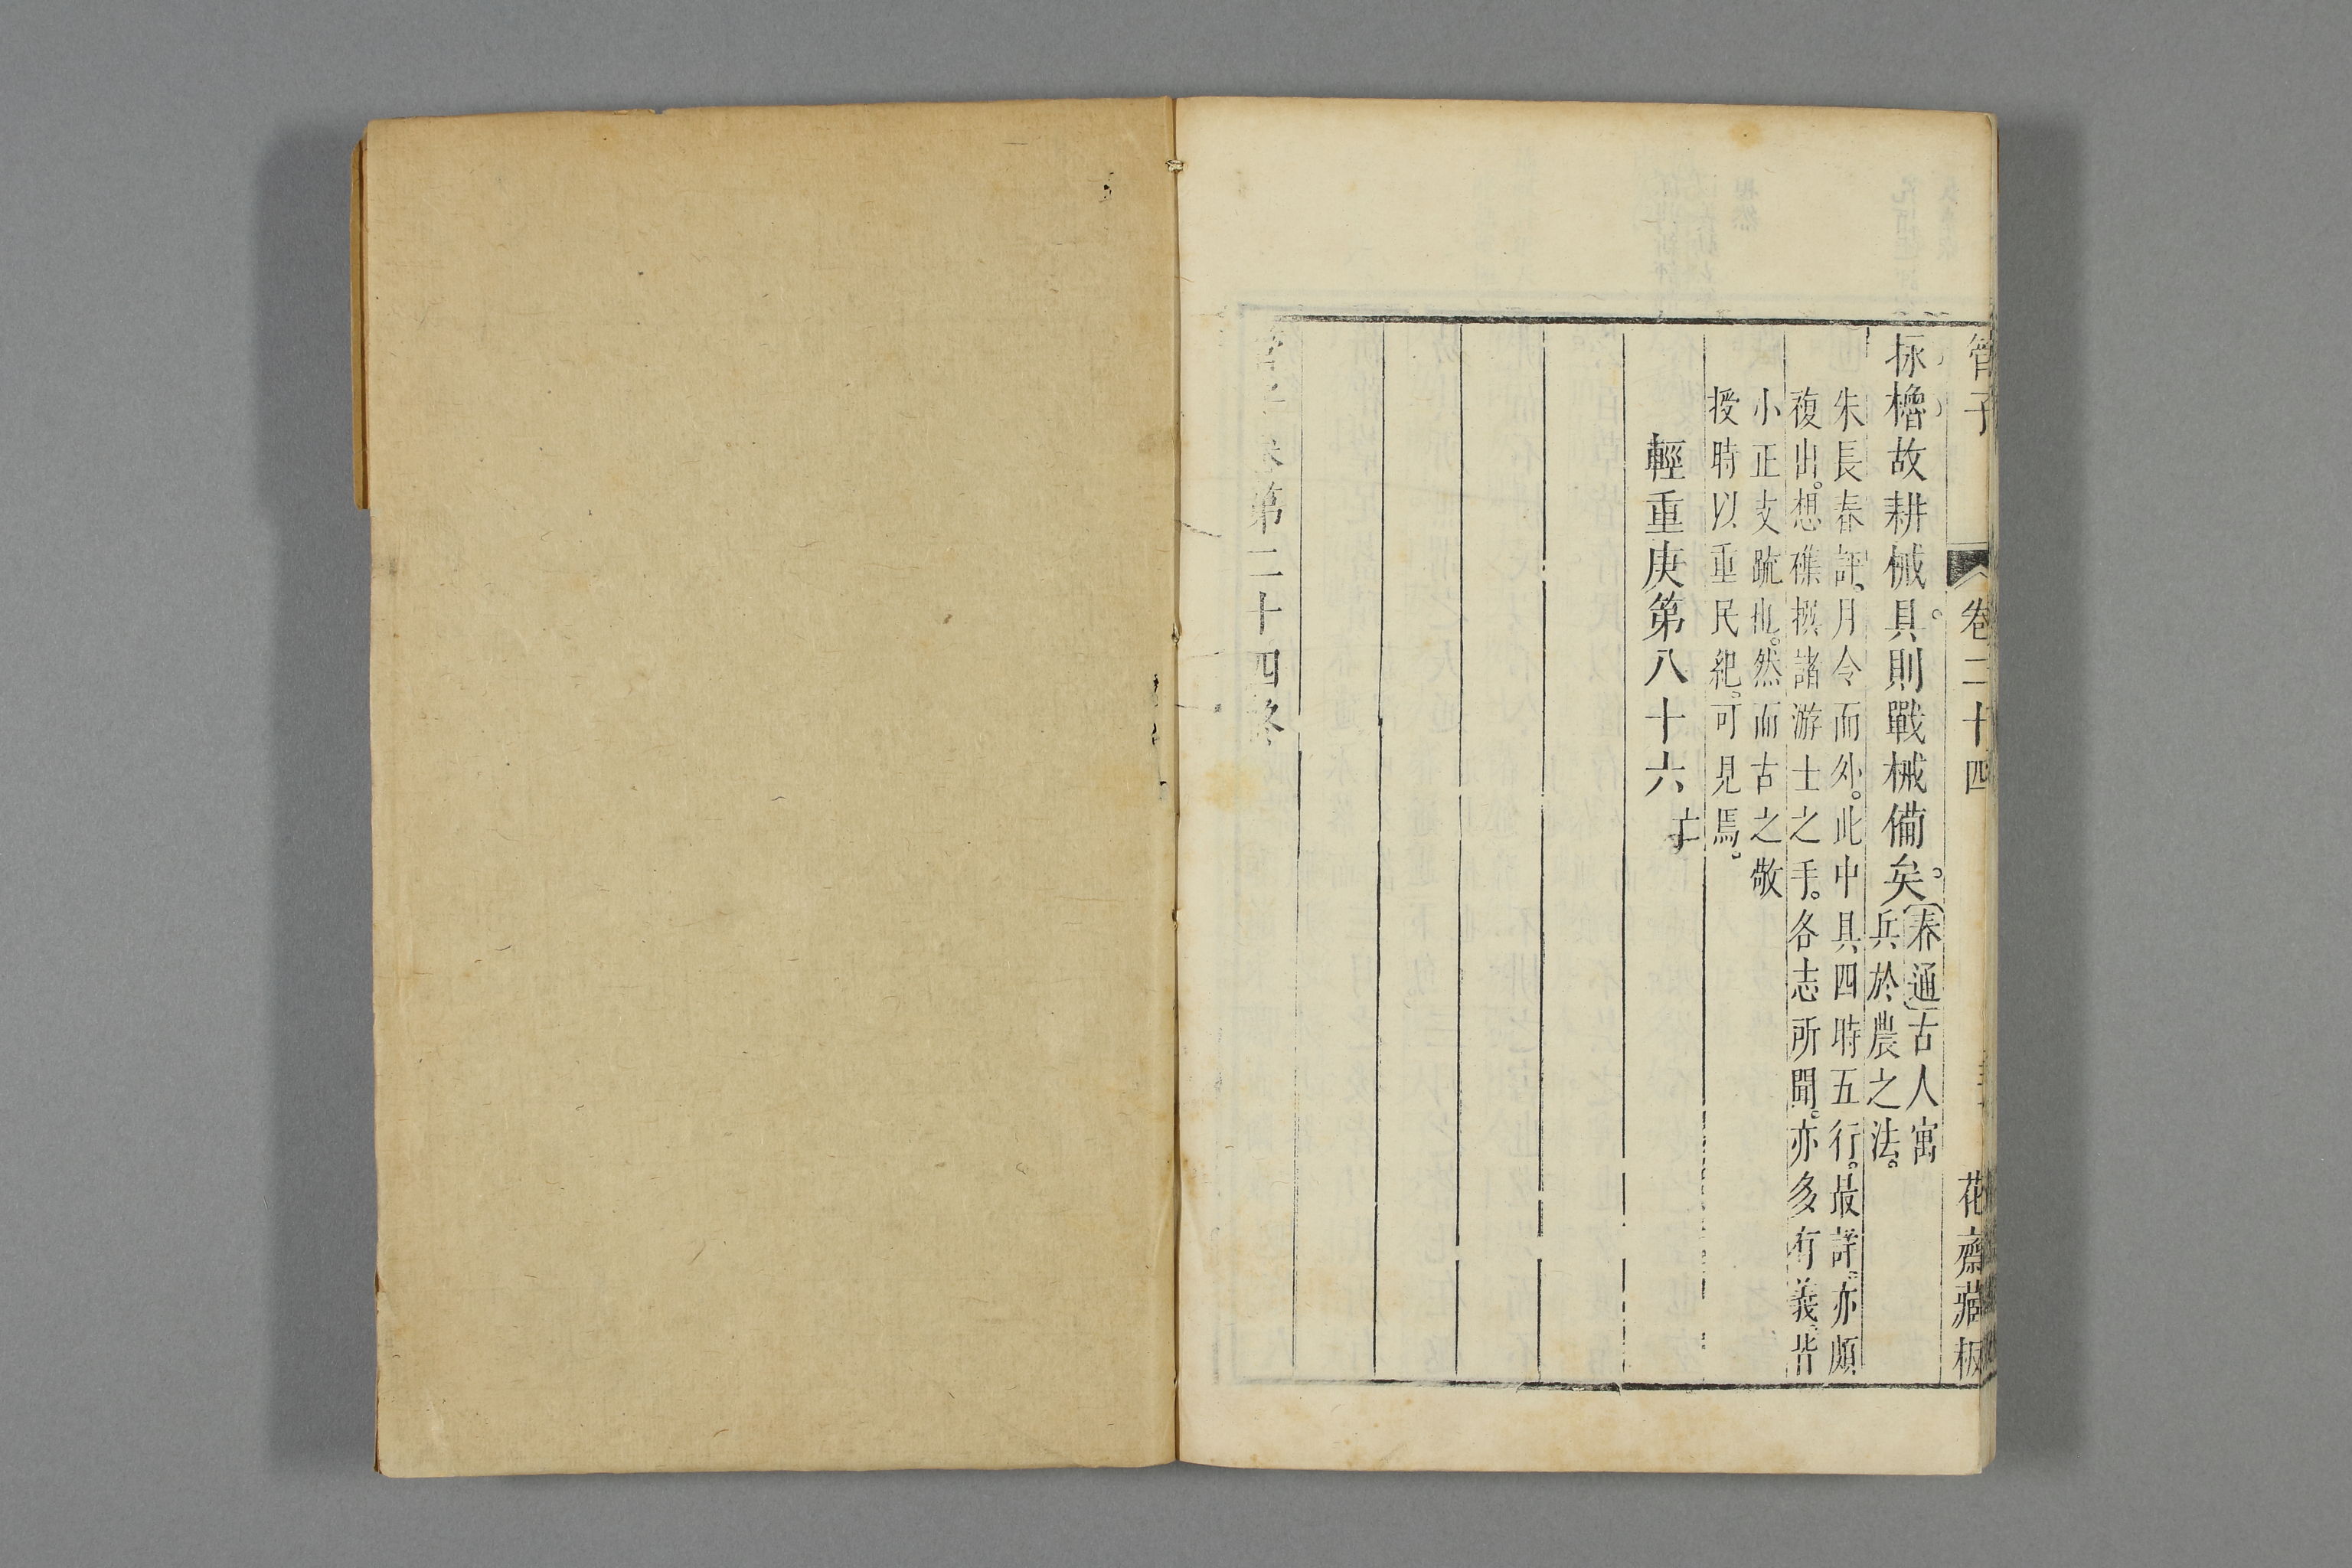 管子 卷二十四 花齋藏板
拯櫓故耕械具。則戰械備矣。
春通古人寓
兵於農之法。
朱長春評、月令而外。此中具四時五行。最詳。亦頗
複出。想雜撰諸游士之手。各志所聞。亦多有義。皆
小正支䟽也。然而古之敬
授時以重民紀。可見焉。
輕重庚第八十六 亡
管子卷第二十四終